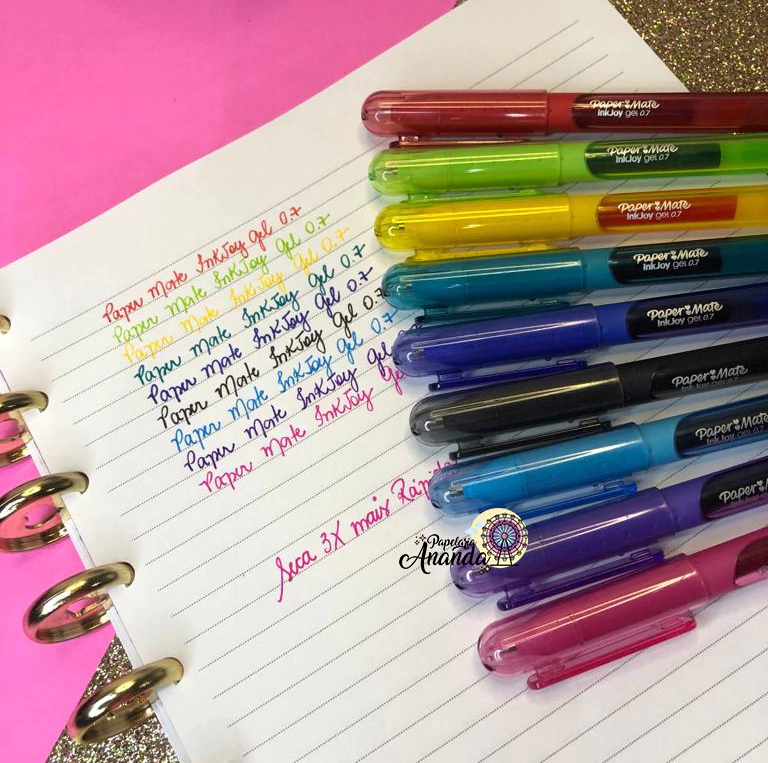 Paper Mate InkJoy Gel 0.7
Paper Mate InkJoy Gel 0.7
Paper Mate InkJoy Gel 0.7
Paper Mate InkJoy Gel 0.7
Paper Mate InkJoy Gel 0.7
Paper Mate InkJoy Gel 0.7
Paper Mate InkJoy Gel 0.7
Paper Mate InkJoy Gel
Paper Mate InkJoy Gel
Seca 3X mais Rápido
Papelaria
Ananda
PAPER MATE
InkJoy gel 0.7
PAPER MATE
InkJoy gel 0.7
PAPER MATE
InkJoy gel 0.7
PAPER MATE
InkJoy gel 0.7
PAPER MATE
InkJoy gel 0.7
PAPER MATE
InkJoy gel 0.7
PAPER MATE
InkJoy gel 0.7
PAPER MATE
InkJoy